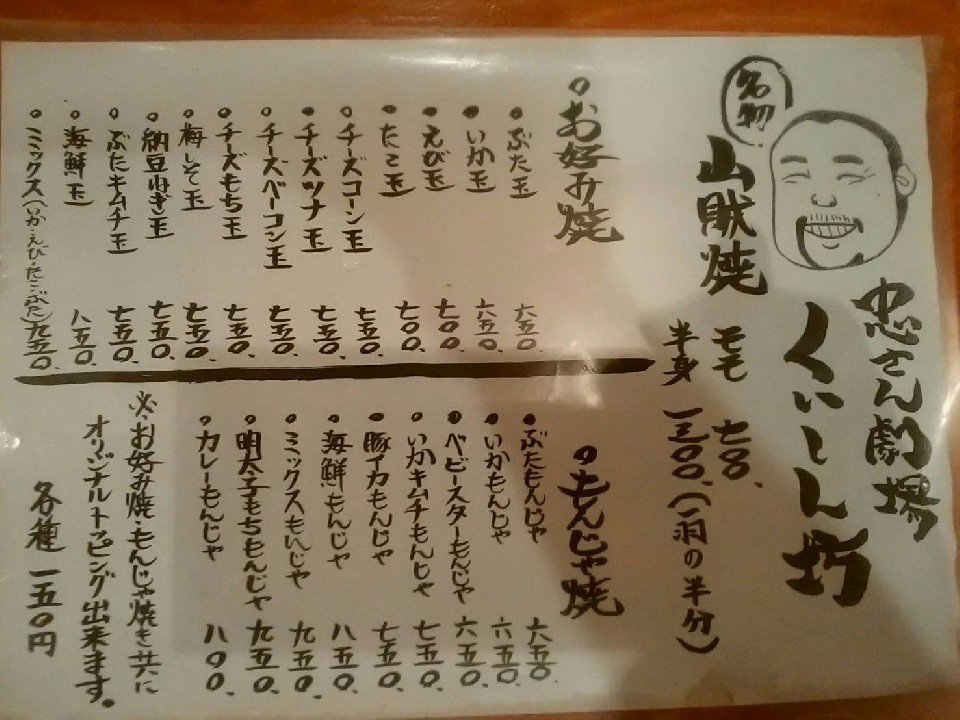 忠さん劇場
くいしん坊
名物
山賊焼 モモ 七〇〇、
半身 一三〇〇、(一羽の半分)
お好み焼
ぶた玉 六五〇、
いか玉 六五〇、
えび玉 七〇〇、
たこ玉 七〇〇、
チーズコーン玉 七五〇、
チーズツナ玉 七五〇、
チーズベーコン玉 七五〇、
チーズもち玉 七五〇、
梅しそ玉 七五〇、
納豆ねぎ玉 七五〇、
ぶたキムチ玉 七五〇、
海鮮玉 八五〇、
ミックス(いか・えび・たこ・ぶた) 九五〇、
もんじゃ焼
ぶたもんじゃ 六五〇、
いかもんじゃ 六五〇、
ベビースターもんじゃ 六五〇、
いかキムチもんじゃ 七五〇、
豚イカもんじゃ 七五〇、
海鮮もんじゃ 八五〇、
ミックスもんじゃ 九五〇、
明太子もちもんじゃ 九五〇、
カレーもんじゃ 八〇〇、
※お好み焼・もんじゃ焼き共に
オリジナルトッピング出来ます。
各種 一五〇円